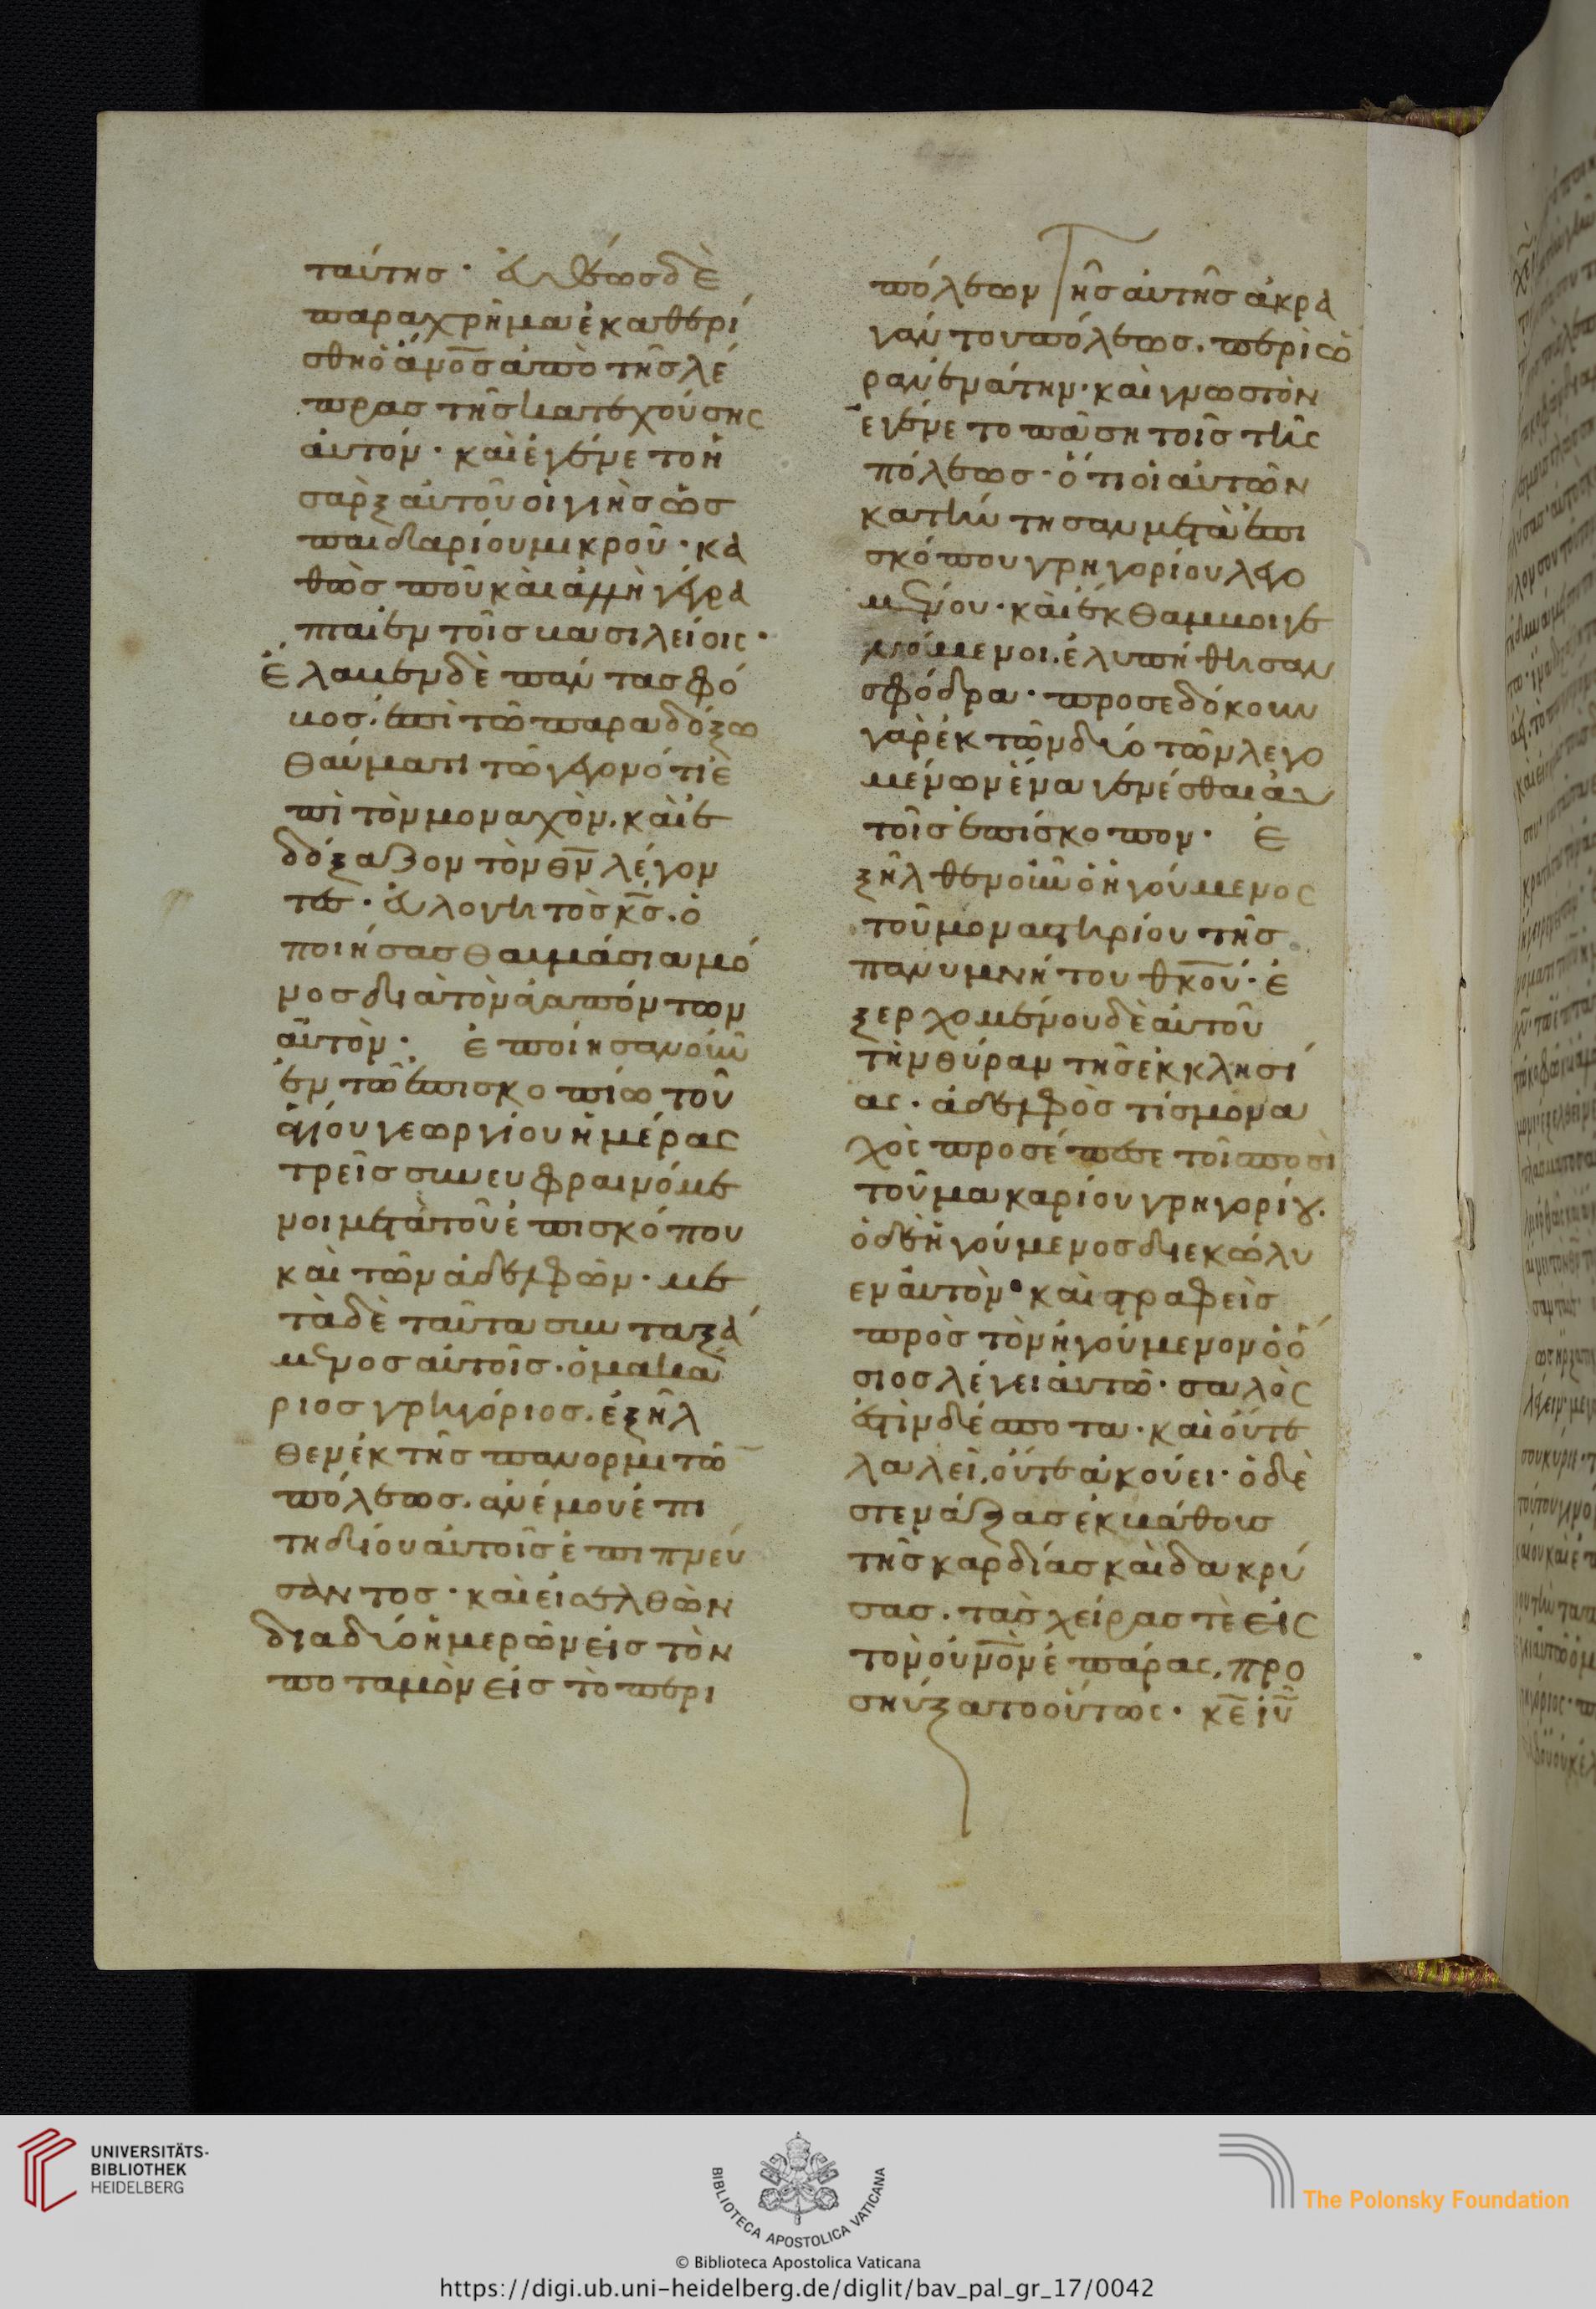 ταύτης· εὐθέως δὲ
παραχρῆμα ἐκαθερί
σθη ὁ ἀνο̅σ ἀπὸ τῆς λέ
πρας τῆς κατεχούσης
αὐτόν· καὶ ἐγένετο ἡ
σὰρξ αὐτοῦ ὑγιὴς ὡς
παιδαρίου μικροῦ· κα
θὼς ποῦ καὶ ἀμμὴ γέγρα
πται ἐν τοῖς βασιλείοις·
Ἔλαβεν δὲ πάντας φό
βος· ἐπὶ τῶ παραδόξω
θαύματι τῶ γεγονότι ἐ
πὶ τὸν μοναχὸν. καὶ ἐ
δόξαζον τὸν θν̅ λέγον
τες· εὐλογητὸς κς̅. ὁ
ποιήσας θαυμάσια μό
νος διὰ τὸν ἀγαπόντων
αὐτὸν· ἐποίησαν οὖν
ἐν τῶ ἐπισκοπίω τοῦ
ἁγίου γεωργίου ἡμέρας
τρεῖς συνευφραινόμε
νοι μετὰ τοῦ ἐπισκόπου
καὶ τῶν ἀδελφῶν· με
τὰ δὲ ταῦτα συνταξά
μενος αὐτοῖς· ὁ μακά
ριος γρηγόριος. ἐξῆλ
θεν ἐκ τῆς πανορμιτῶ
πόλεως. ἀνέμου ἐπι
τηδίου αὐτοῖς ἐπιπνεύ
σαντος· καὶ εἰσελθὼν
διὰ δύο ἡμερῶν εἰς τὸν
ποταμὸν εἰς τὸ περι
πόλεων τῆς αὐτῆς ἀκρα
γαντουπόλεως. περὶ ὥ
ραν ἐνάτην· καὶ γνωστὸν
ἐγένετο πᾶση τοῖς τῆς
πόλεως· ὅτι οἱ αὐτῶν
κατήντησαν μετὰ ἐπι
σκόπου γρηγορίου λεγο
μένου· καὶ ἔκθαμβοι γε
νόμενοι. ἐλυπήθησαν
σφόδρα· προσεδόκουν
γὰρ ἐκ τῶν δύο τῶν λεγο
μένων ἕνα γενέσθαι αὐ
τοῖς ἐπίσκοπον· Ἐ
ξῆλθεν οὖν ὁ ἡγούμενος
τοῦ μοναστηρίου τῆς
πανυμνήτου θκου̅· ἐ
ξερχομένου δὲ αὐτοῦ
τὴν θύραν τῆς ἐκκλησί
ας· ἀδελφὸς τίς μονα
χὸς προσέπεσε τοῖ ποσὶ
τοῦ μακαρίου γρηγορίου.
ὁ δὲ ἡγούμενος διεκώλυ
εν αὐτὸν· καὶ στραφεὶς
πρὸς τὸν ἡγούμενον ὁ ὅ
σιος λέγει αὐτῶ· σαλὸς
ἐστὶν δέσποτα· καὶ οὔτε
λαλεῖ, οὔτε ἀκούει· ὁ δὲ
στενάξας ἐκ βάθους
τῆς καρδίας καὶ δακρύ
σας. τὰς χεῖρας τὲ εἰς
τὸν οὐνο̅ν ἐπάρας, προ
σηύξατο οὕτως· κε̅ ιυ̅
UNIVERSITÄTS-
BIBLIOTHEK
HEIDELBERG
BIBLIOTECA APOSTOLICA VATICANA
The Polonsky Foundation
© Biblioteca Apostolica Vaticana
https://digi.ub.uni-heidelberg.de/diglit/bav_pal_gr_17/0042